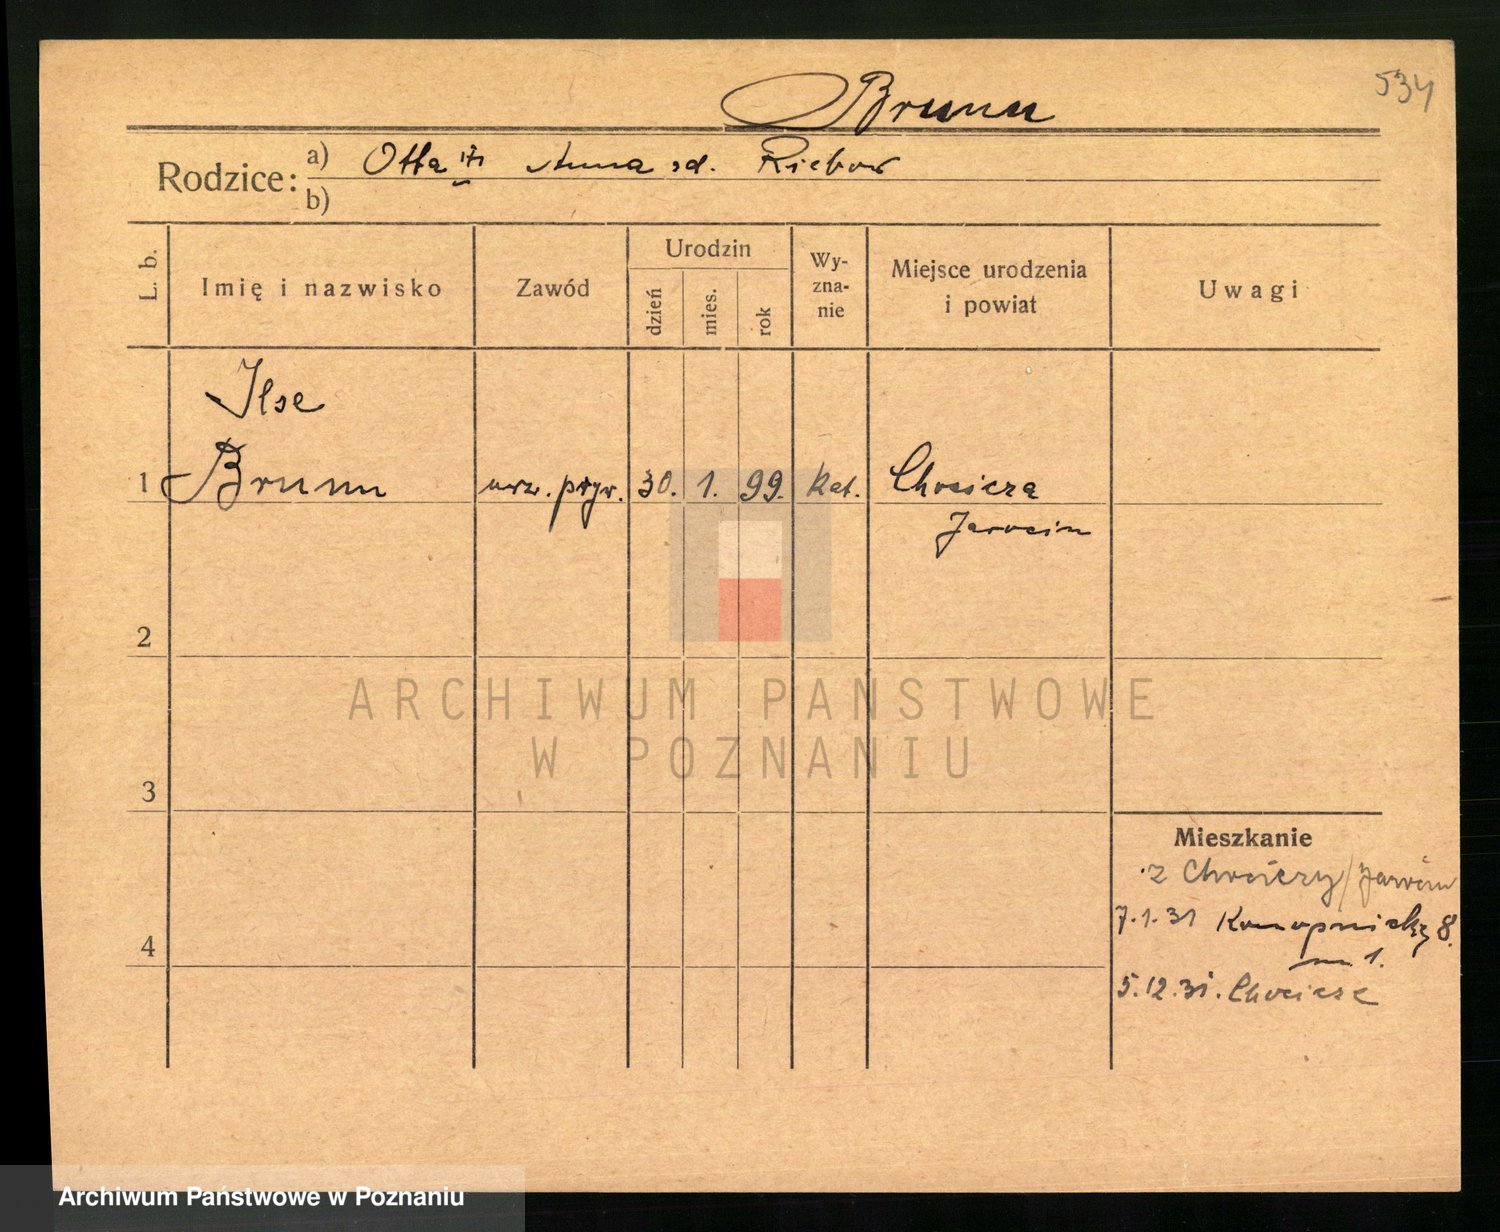 534
Brunn
Rodzice: a) Otto i Anna zd. Riebow
b)
L. b.
Imię i nazwisko
Zawód
Urodzin
dzień
mies.
rok
Wy-
zna-
nie
Miejsce urodzenia
i powiat
Uwagi
Ilse
1 Brunn urz. pryw. 30. 1. 99. kat. Chocicza
Jarocin
2
ARCHIWUM PAŃSTWOWE
W POZNANIU
3
Mieszkanie
z Chociczy / Jarocin
7.1.31 Konopnickiej 8.
m 1.
4
5.12.31. Chocicze
Archiwum Państwowe w Poznaniu